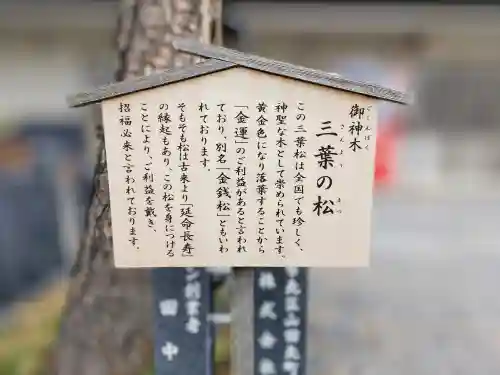 御神木
ごしんぼく
三葉の松
さんようのまつ
この三葉松は全国でも珍しく、
神聖な木として崇められています。
黄金色になり落葉することから
「金運」のご利益があると言われ
ており、別名「金銭松」ともいわ
れております。
そもそも松は古来より「延命長寿」
の縁起もあり、この松を身につける
ことにより、ご利益を戴き、
招福必来と言われております。
株式会社
田中